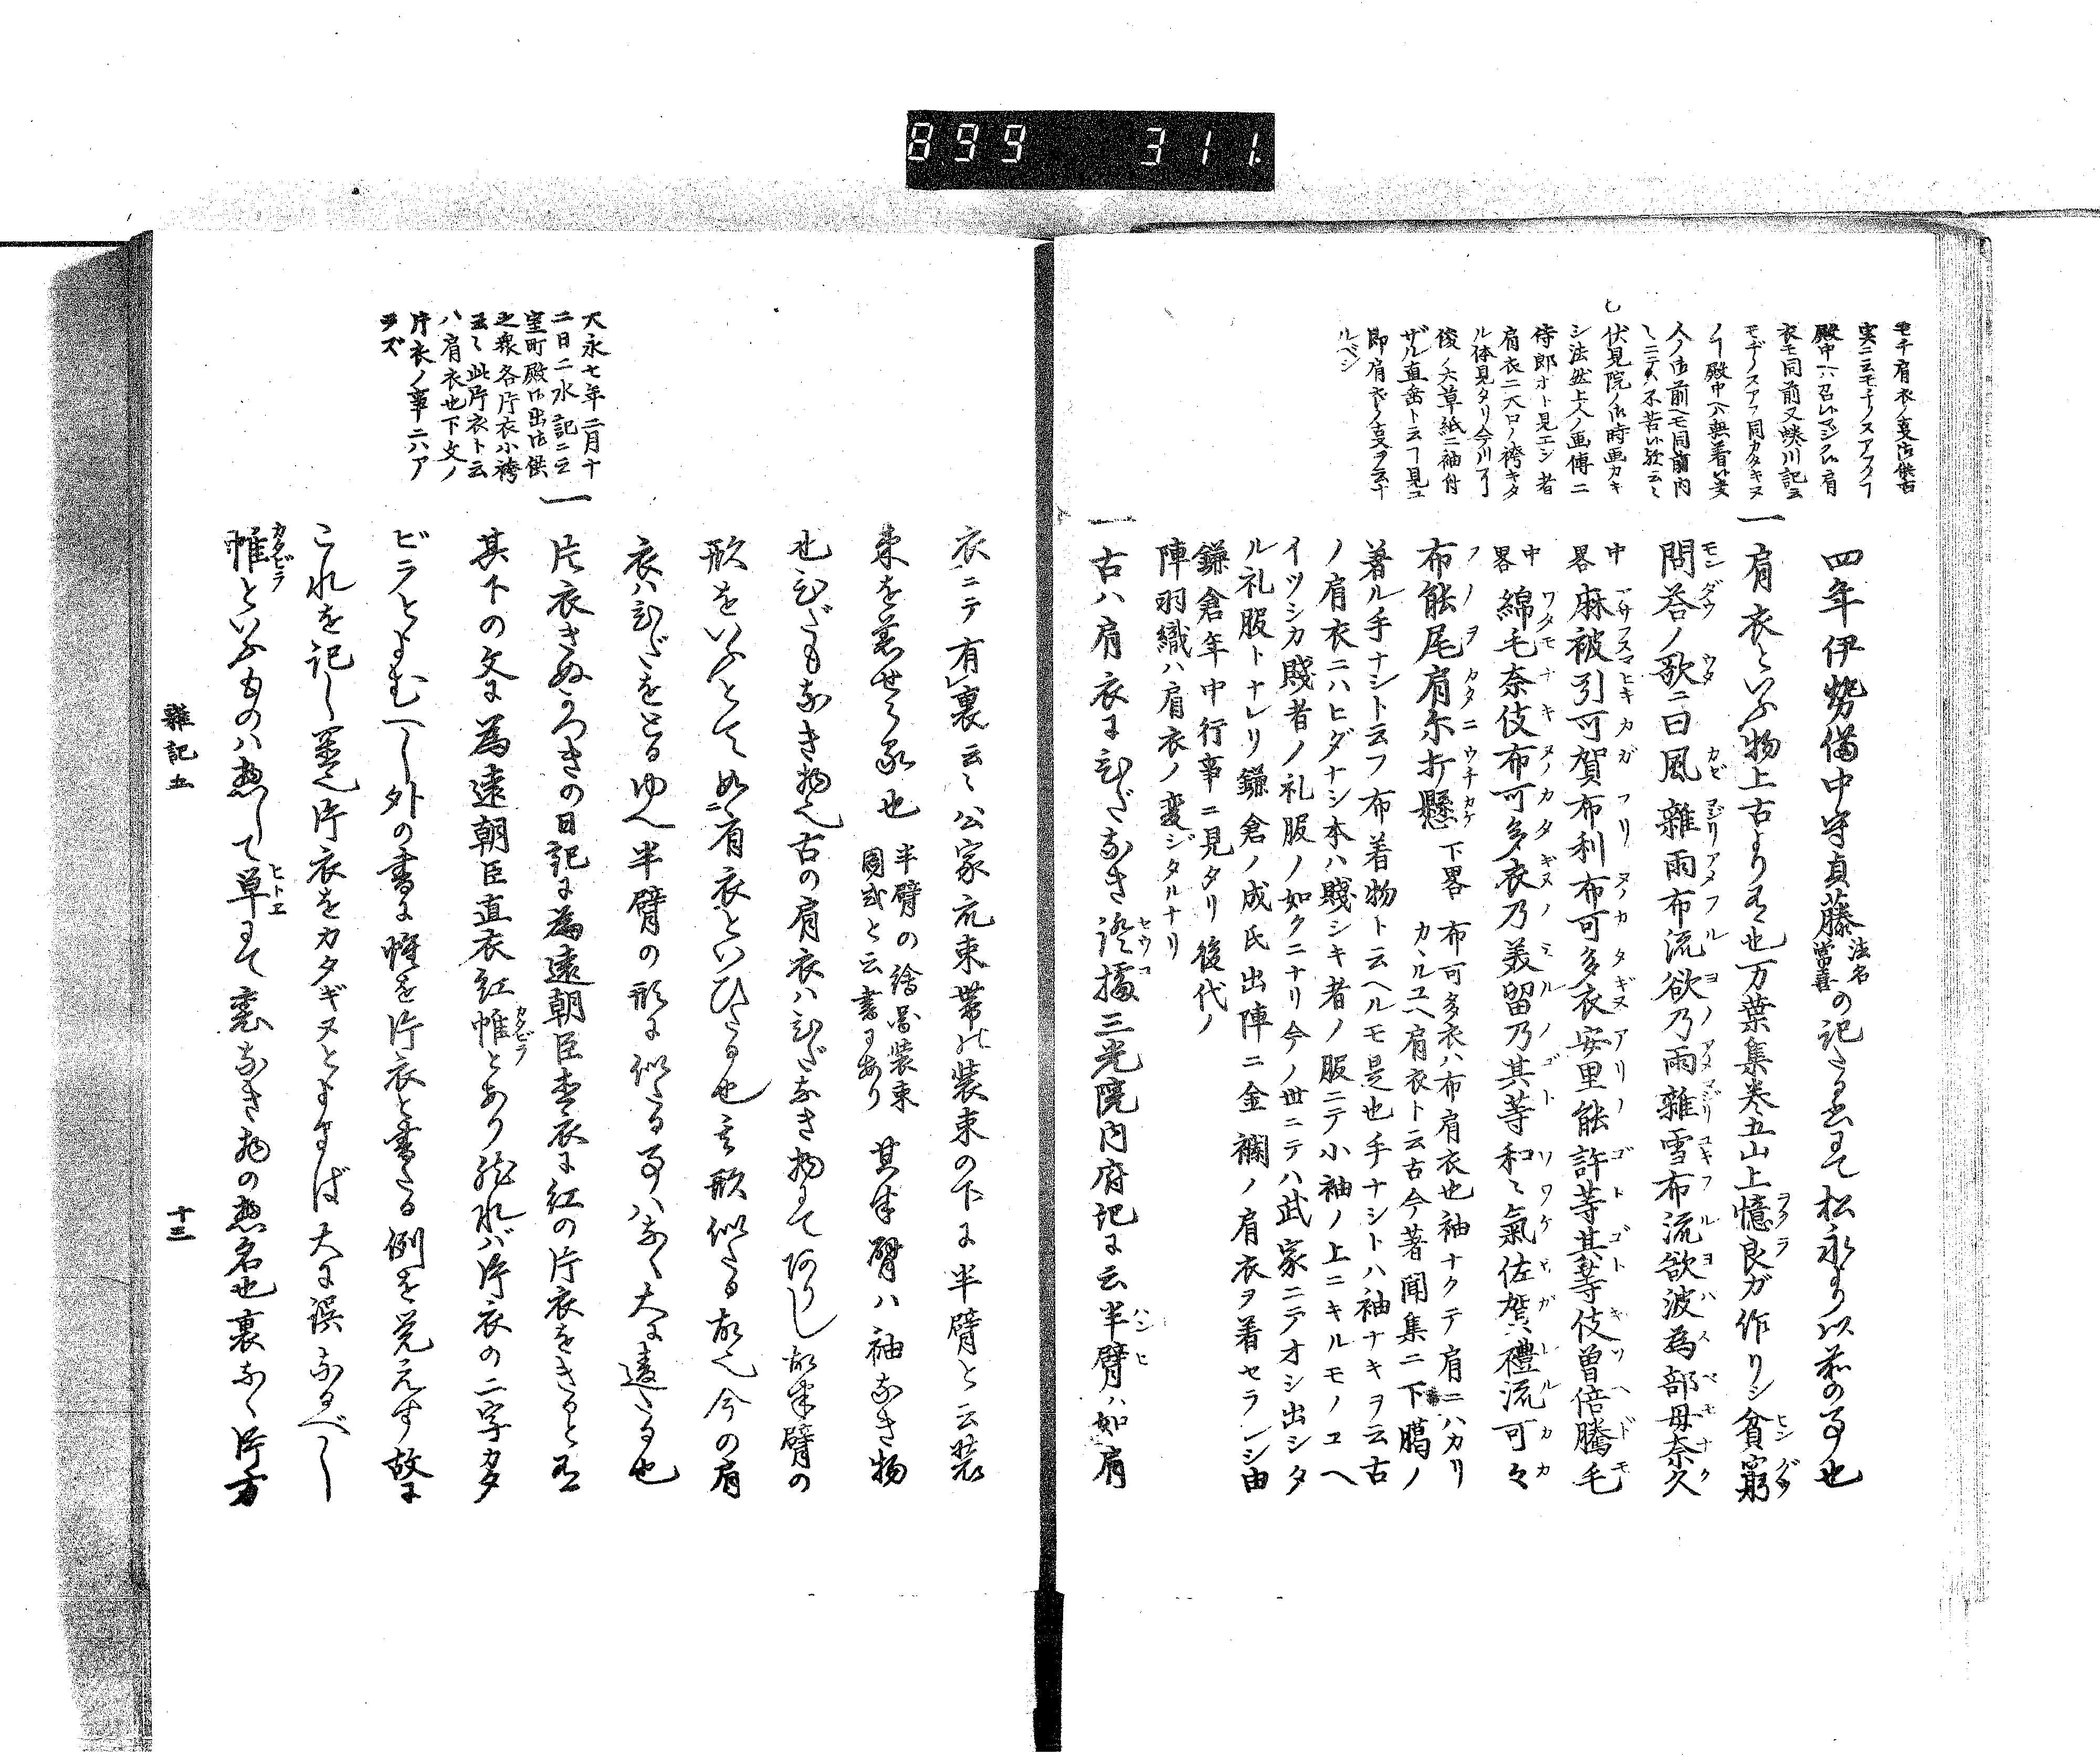 899 311.
モチ肩衣ノ事
実ニ云モチノスアフ
殿中ヘハ召レマジク候肩
衣モ同前又蜷川記云
モヂノスアフ同カタキヌ
ノ丁殿中ヘハ無着候
人ノ御前ヘモ同前内
々ニテハ不苦候歟云々
伏見院ノ御時画カキ
シ法然上人ノ画傳ニ
侍郎オト見エシ者
肩衣ニ大口ノ袴キタ
ル体見タリ今川
俊ノ大草紙ニ袖付
ザル直垂ト云丁見ユ
即肩衣ノ事ヲ云ナ
ルベシ
四年伊勢備中守貞藤法名常喜の記したる書にて松永より以前の事也
一肩衣といふ物上古より有也万葉集巻五山上憶良ガ作リシ貧窮
問荅ノ歌ニ曰風雜雨布流欲乃雨雜雪布流欲波為部母奈久
中畧麻被引可賀布利布可多衣安里能許等其等伎曽倍騰毛
中畧綿毛奈伎布可多衣乃美留乃其等和々氣佐賀禮流可々
布能尾肩尓打懸下畧布可多衣ハ布肩衣也袖ナクテ肩ニハカリ
カヽルユヘ肩衣ト云古今著聞集ニ下臈ノ
著ル手ナシト云フ布着物ト云ヘルモ是也手ナシトハ袖ナキヲ云古
ノ肩衣ニハヒダナシ本ハ賤シキ者ノ服ニテ小袖ノ上ニキルモノユヘ
イツシカ賤者ノ礼服ノ如クニナリ今ノ世ニテハ武家ニテオシ出シタ
ル礼服トナレリ鎌倉ノ成氏出陣ニ金襴ノ肩衣ヲ着セラレシ由
鎌倉年中行事ニ見タリ後代ノ
陣羽織ハ肩衣ノ変ジタルナリ
一古ハ肩衣にひだなき證據三光院内府記に云半臂ハ如肩
大永七年二月十
二日二水記ニ云
室町殿御出御供
之衆各片衣小袴
云々此片衣ト云
ハ肩衣也下文ノ
片衣ノ事ニハア
ラズ
衣ニテ有裏云々公家元束帯の装束の下に半臂と云装
束を着せらるゝ也半臂の繪圖装束圖式と云書にあり其半臂ハ袖なき物
也ひだもなき物也古の肩衣ハひだなき物にてありし故半臂の
形をいふとて如肩衣といひたる也其形似たる故也今の肩
衣ハひだをとるゆへ半臂の形に似たる事ハなく大に違たる也
一片衣きぬうつきの日記に為遠朝臣直衣に紅の片衣をきると有
其下の文に為遠朝臣直衣紅帷とあり然れバ片衣の二字カタ
ビラとよむべし外の書に帷を片衣と書たる例を覚えず故に
これを記し置也片衣をカタギヌとよまば大に誤なるべし
帷といふものハ惣して単にて裏なき物の惣名也裏なく片方
雜記五
十三